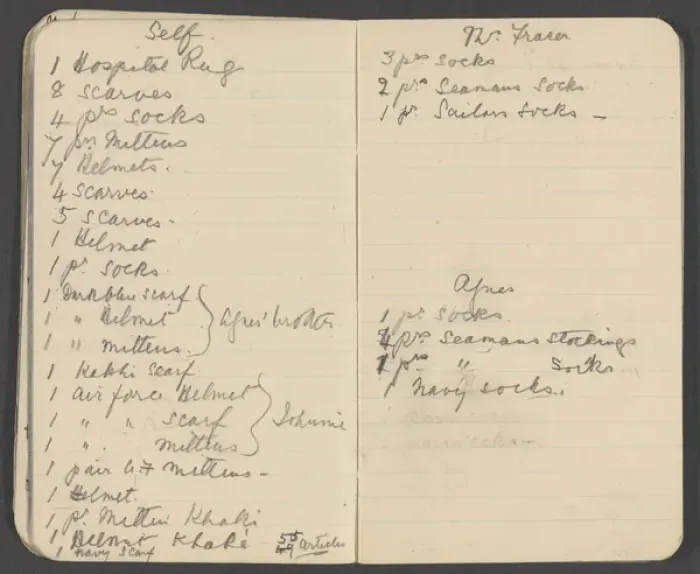 Self.
1 Hospital Rug
8 Scarves
4 prs Socks
7 prs Mittens
7 Helmets.
4 Scarves.
5 Scarves.
1 Helmet
1 pr. Socks.
1 Dark blue Scarf
1 " Helmet
1 " mittens.
Agnes' brother
1 Kakhi Scarf
1 air force Helmet
1 " " Scarf
1 " . mittens
Johnnie
1 pair A.F mittens -
1 Helmet.
1 pr. Mittens Khaki
1 Helmet Khaki
1 Navy Scarf
55
49 articles
Mrs. Fraser
3 prs Socks
2 prs Seamans Socks
1 pr. Sailors Socks -
Agnes
1 pr. Socks.
4 prs Seamans Stockings
1 prs " Socks
1 Navy Socks.